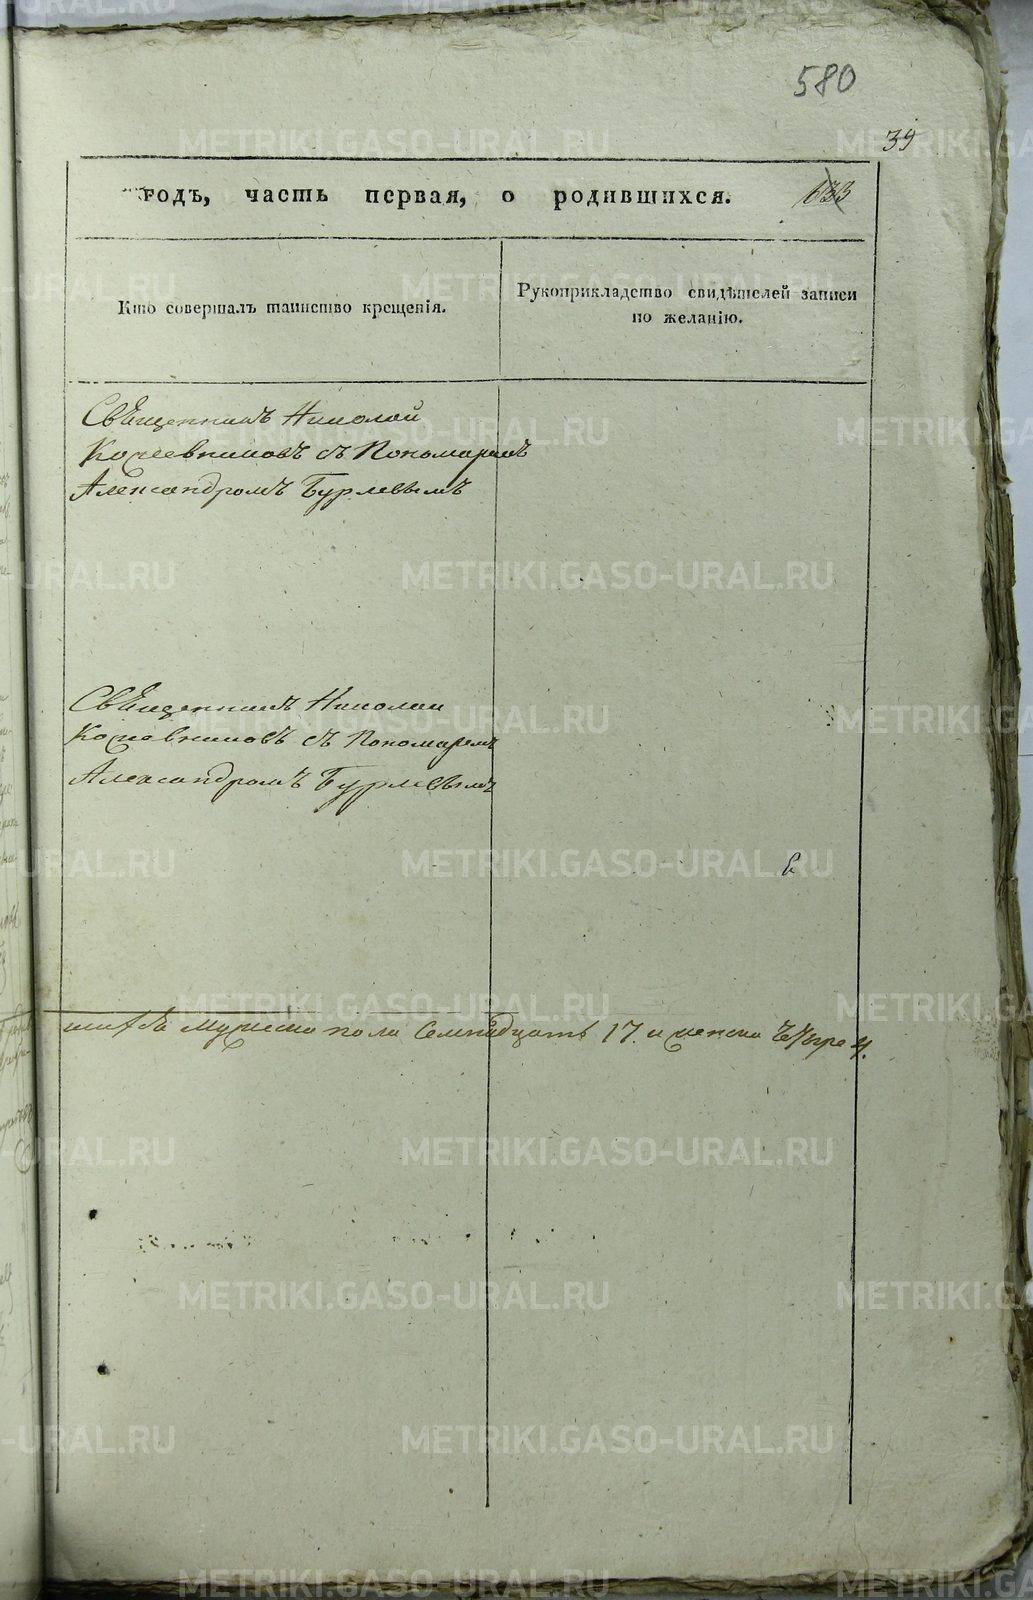 580
39
годъ, часть первая, о родившихся. 633
Кто совершалъ таинство крещенія.
Рукоприкладство свидѣтелей записи
по желанію.
Священникъ Николай
Кожевниковъ съ Пономаремъ
Александромъ Бурлевымъ
Священникъ Николай
Кожевниковъ съ Пономаремъ
Александромъ Бурлевымъ
мужеска пола Семнадцать 17. и женска
METRIKI.GASO-URAL.RU